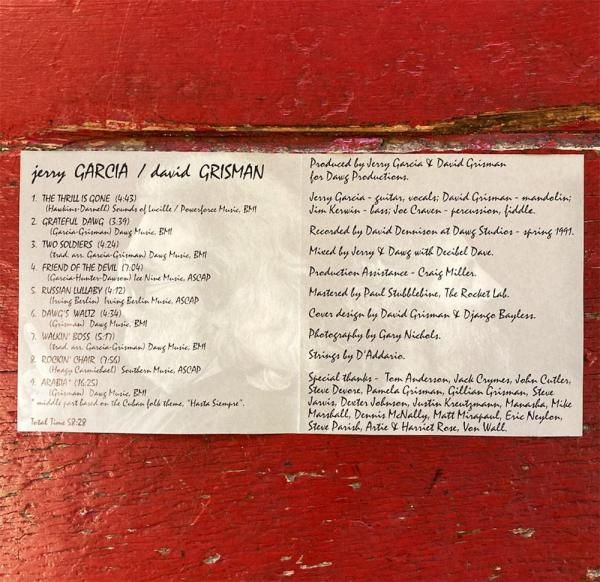 jerry GARCIA / david GRISMAN
1. THE THRILL IS GONE (4:43)
(Hawkins-Darnell) Sounds of Lucille / Powerforce Music, BMI
2. GRATEFUL DAWG (3:39)
(Garcia-Grisman) Dawg Music, BMI
3. TWO SOLDIERS (4:24)
(trad. arr. Garcia-Grisman) Dawg Music, BMI
4. FRIEND OF THE DEVIL (7:04)
(Garcia-Hunter-Dawson) Ice Nine Music, ASCAP
5. RUSSIAN LULLABY (4:12)
(Irving Berlin) Irving Berlin Music, ASCAP
6. DAWG'S WALTZ (4:34)
(Grisman) Dawg Music, BMI
7. WALKIN' BOSS (5:17)
(trad. arr. Garcia-Grisman) Dawg Music, BMI
8. ROCKIN' CHAIR (7:56)
(Hoagy Carmichael) Southern Music, ASCAP
9. ARABIA* (16:25)
(Grisman) Dawg Music, BMI
* middle part based on the Cuban folk theme, "Hasta Siempre".
Total Time 58:28
Produced by Jerry Garcia & David Grisman
for Dawg Productions.
Jerry Garcia - guitar, vocals; David Grisman - mandolin;
Jim Kerwin - bass; Joe Craven - percussion, fiddle.
Recorded by David Dennison at Dawg Studios - spring 1991.
Mixed by Jerry & Dawg with Decibel Dave.
Production Assistance - Craig Miller.
Mastered by Paul Stubblebine, The Rocket Lab.
Cover design by David Grisman & Django Bayless.
Photography by Gary Nichols.
Strings by D'Addario.
Special thanks - Tom Anderson, Jack Crymes, John Cutler,
Steve Devore, Pamela Grisman, Gillian Grisman, Steve
Jarvis, Dexter Johnson, Justin Kreutzmann, Manasha, Mike
Marshall, Dennis McNally, Matt Mirapaul, Eric Neylon,
Steve Parish, Artie & Harriet Rose, Von Wall.